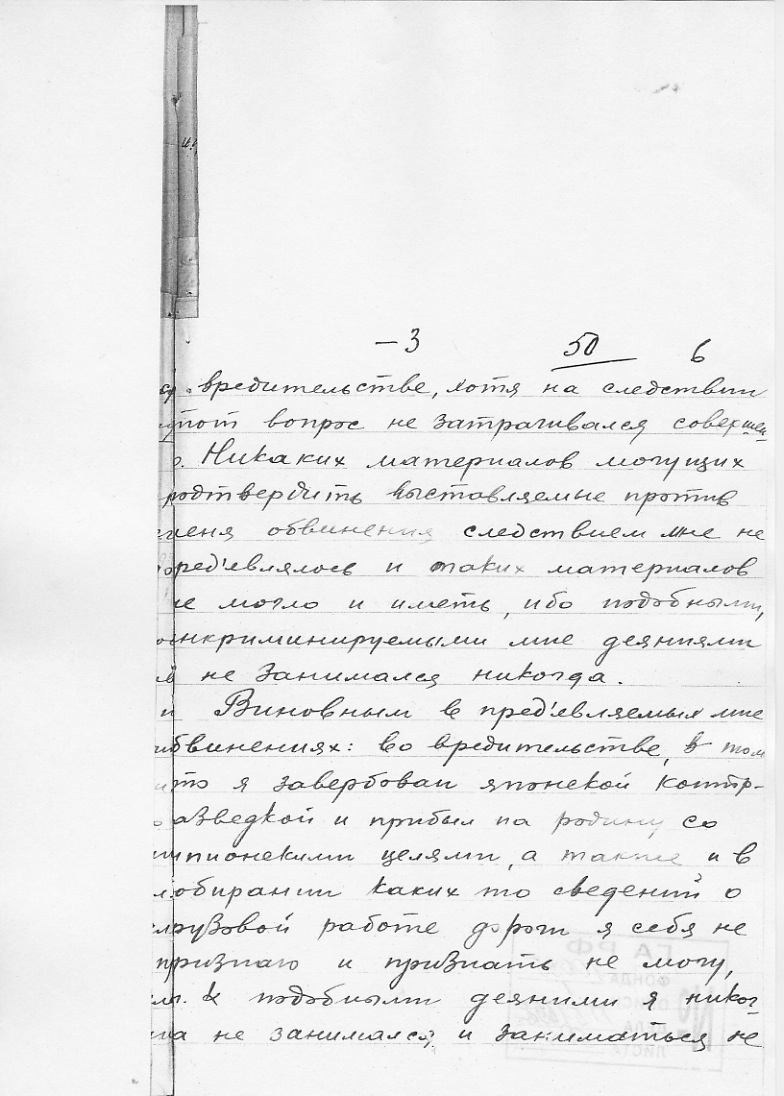 — 3 50 6
вредительстве, хотя на следствии
этот вопрос не затрагивался совершен
о. Никаких материалов могущих
подтвердить выставляемые против
меня обвинения следствием мне не
пред'евлялось и таких материалов
не могло и иметь, ибо подобными,
инкриминируемыми мне деяниями
я не занимался никогда.
Виновным в пред'евляемых мне
обвинениях: во вредительстве, в том
что я завербован японской контр-
азведкой и прибыл на родину со
шпионскими целями, а также и в
собирании каких то сведений о
грузовой работе дороги я себя не
признаю и признать не могу,
т. к подобными деяними я никог-
да не занимался и заниматься не
ГА РФ
ФОНД